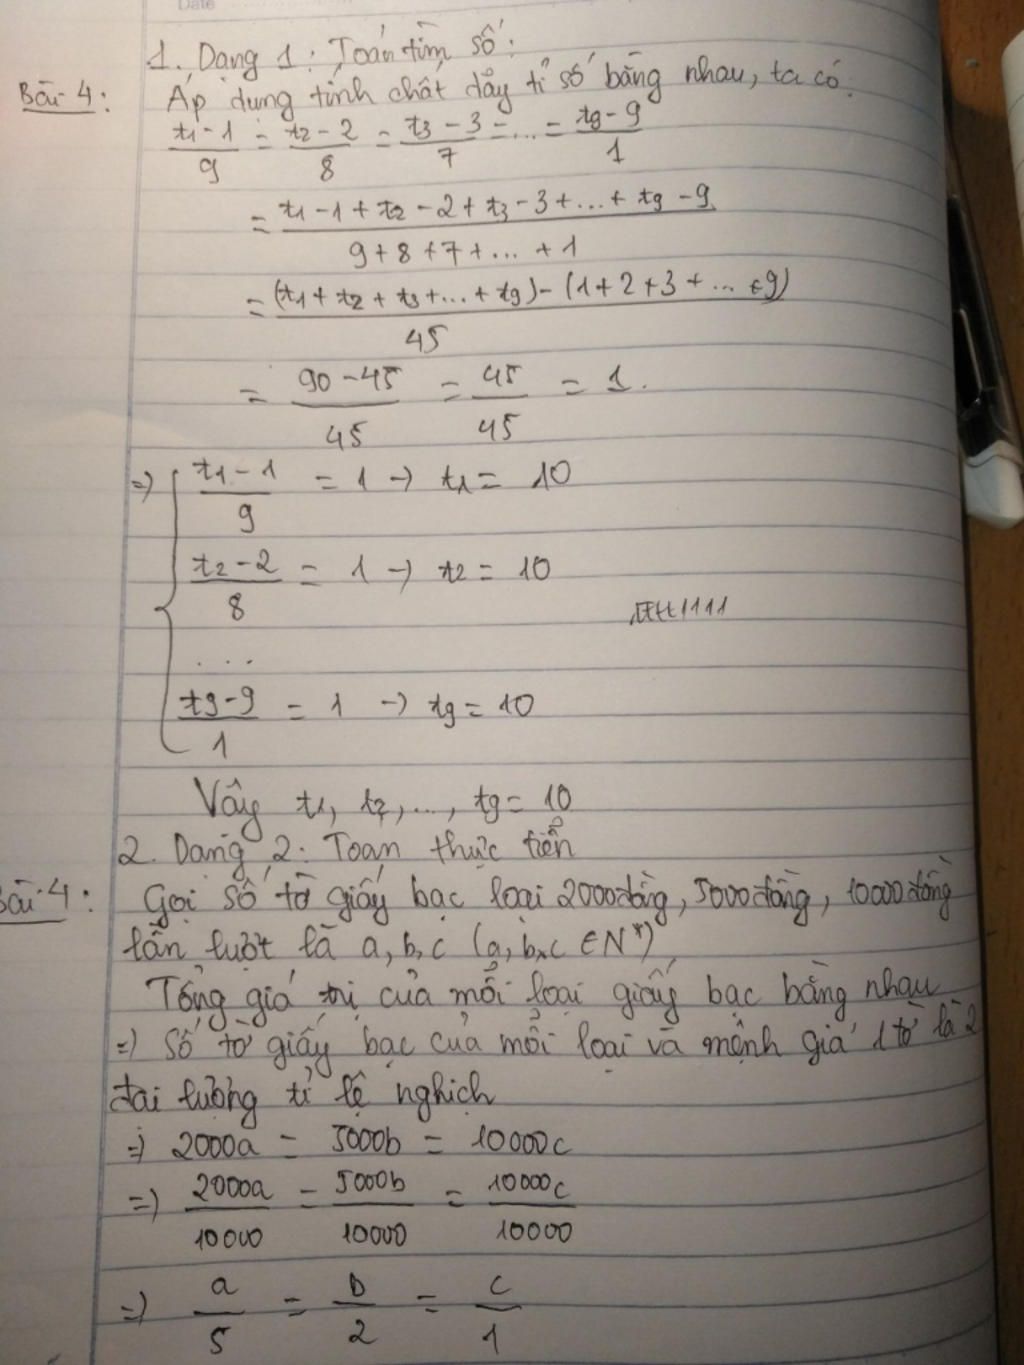 Date
1. Dạng 1: Toán tìm số:
Bài 4: Áp dụng tính chất dãy tỉ số bằng nhau, ta có:
x1-1/9 = x2-2/8 = x3-3/7 = ... = x9-9/1
= x1-1+x2-2+x3-3+...+x9-9/9+8+7+...+1
= (x1+x2+x3+...+x9)-(1+2+3+...+9)/45
= 90-45/45 = 45/45 = 1.
=> { x1-1/9 = 1 -> x1 = 10
x2-2/8 = 1 -> x2 = 10
...
x9-9/1 = 1 -> x9 = 10
Vậy x1, x2, ..., x9 = 10
2. Dạng 2: Toán thực tiễn
Bài 4: Gọi số tờ giấy bạc loại 2000đồng, 5000đồng, 10000đồng
lần lượt là a, b, c (a, b, c ∈ N*)
Tổng giá trị của mỗi loại giấy bạc bằng nhau
=> Số tờ giấy bạc của mỗi loại và mệnh giá 1 tờ là 2
đại lượng tỉ lệ nghịch
=> 2000a = 5000b = 10000c
=> 2000a/10000 = 5000b/10000 = 10000c/10000
=> a/5 = b/2 = c/1